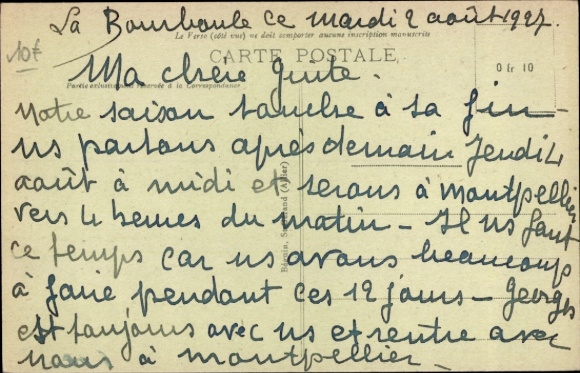 La Bourboule ce mardi 2 août 1927.
Le Verso (côté vue) ne doit comporter aucune inscription manuscrite
10f
CARTE POSTALE
0 fr 10
Ma chère
Partie exclusivement réservée à la Correspondance
Notre saison touche à sa fin
ns partons après demain Jeudi 4
août à midi et serons à Montpellier
vers 4 heures du matin - Il ns faut
ce temps car ns avons beaucoup
à faire pendant ces 12 jours - Georges
est toujours avec ns et rentre avec
nous à Montpellier -
(Allier)